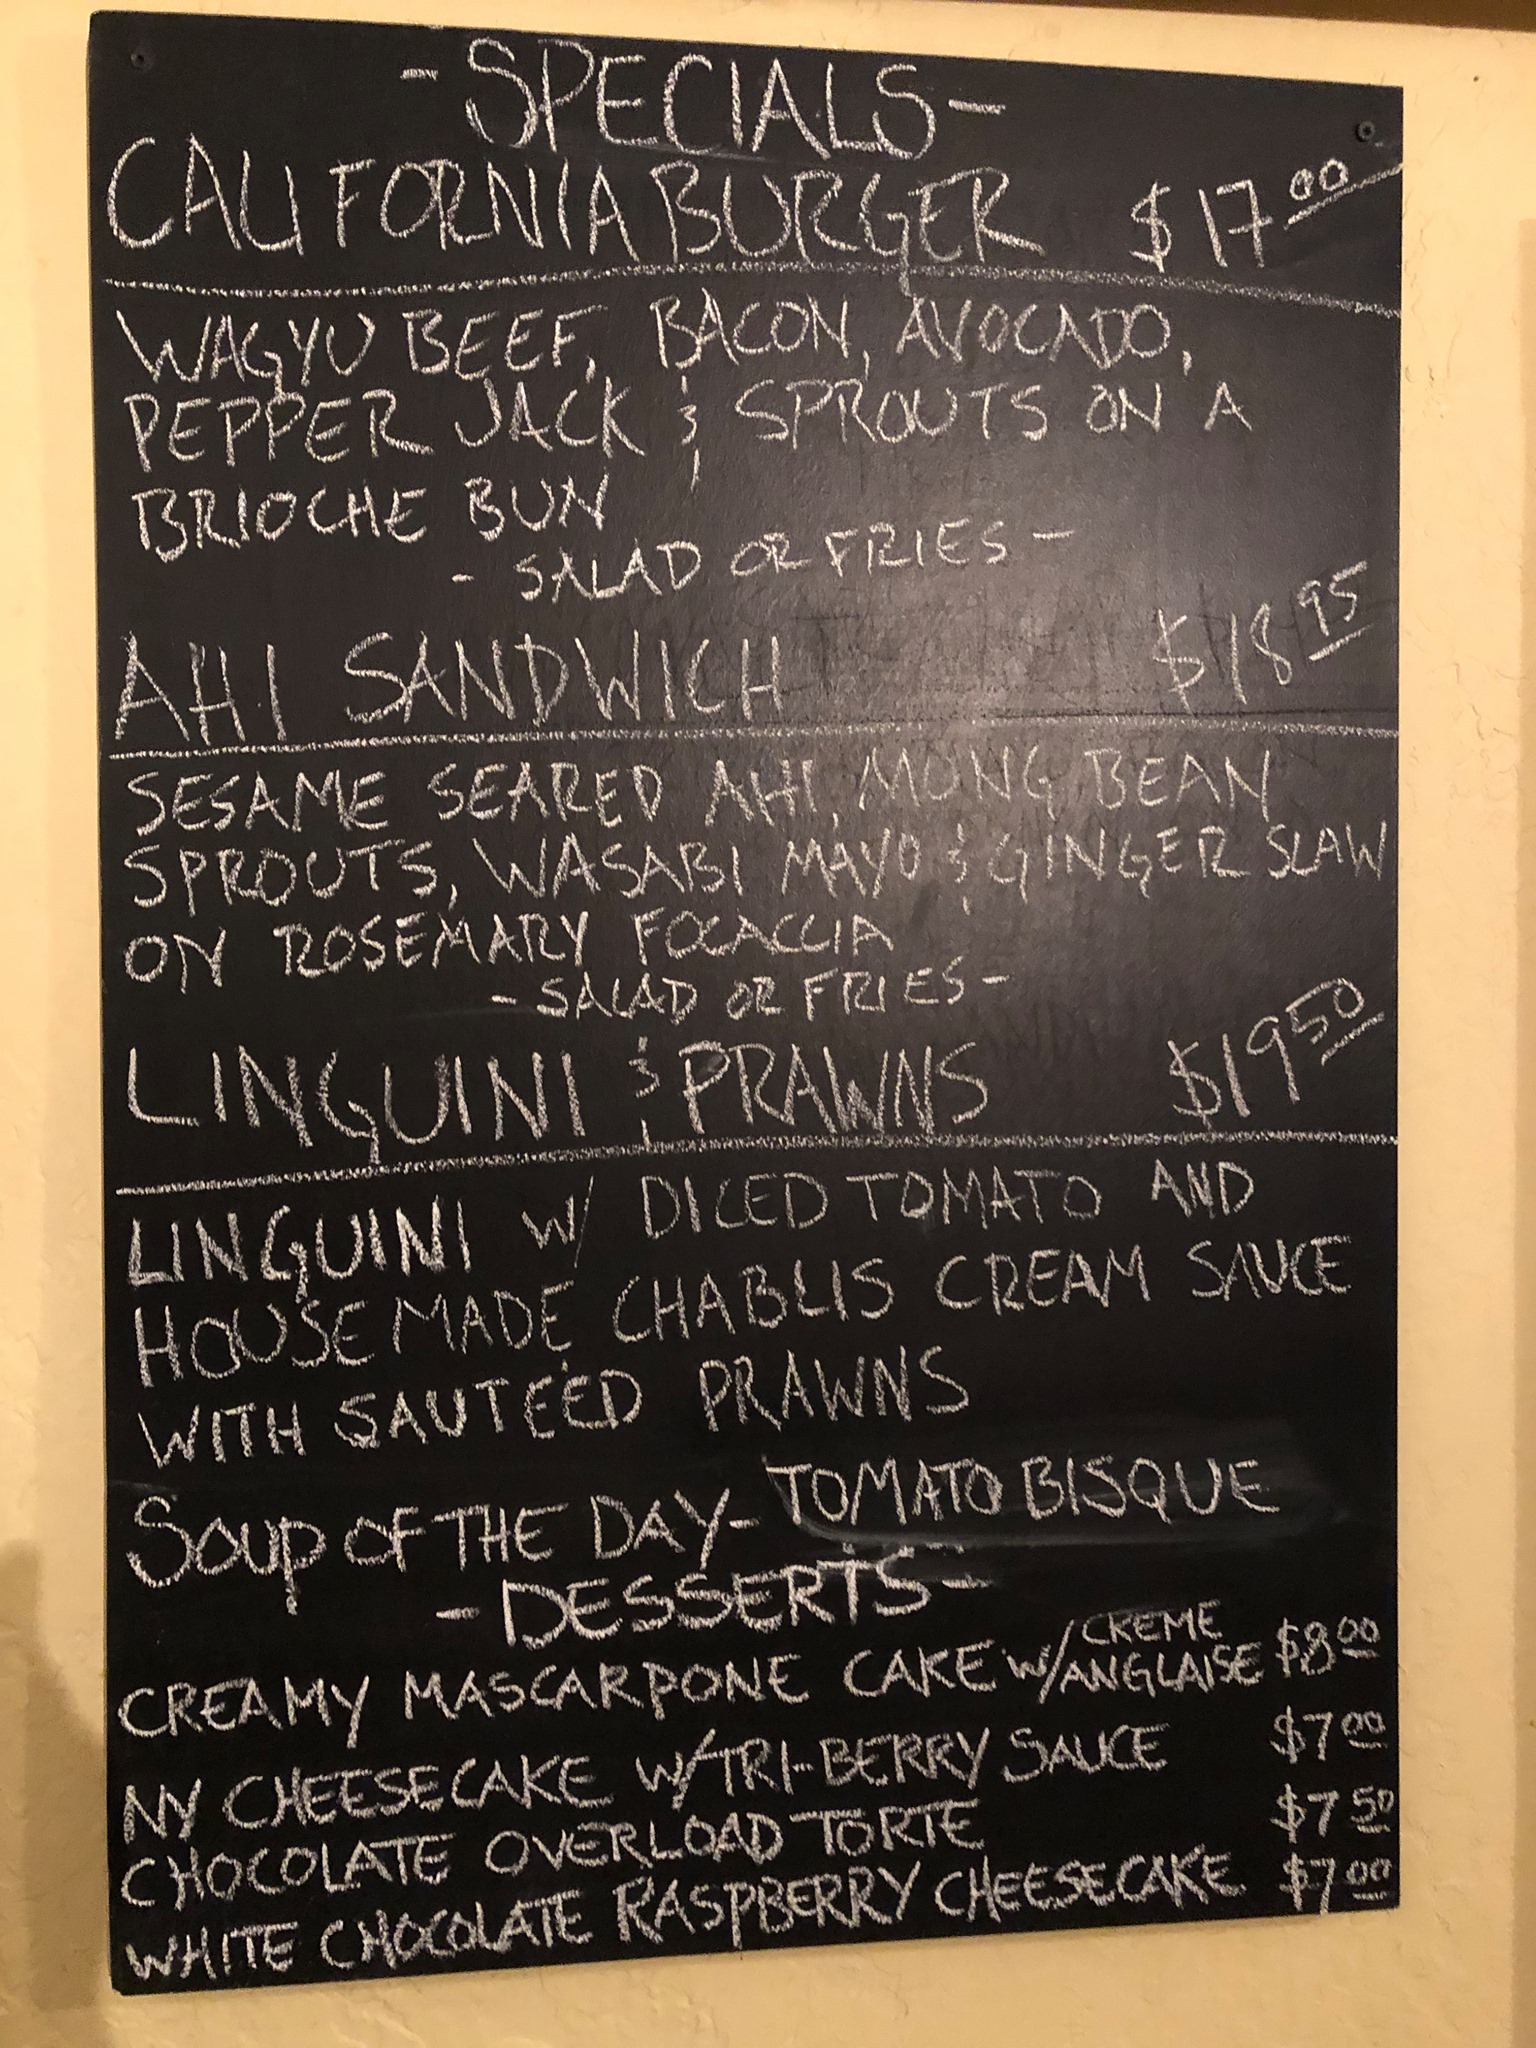 -SPECIALS-
CALIFORNIA BURGER $17.00
WAGYU BEEF, BACON, AVOCADO,
PEPPER JACK & SPROUTS ON A
BRIOCHE BUN
- SALAD OR FRIES -
AHI SANDWICH $18.95
SESAME SEARED AHI, MONG BEAN
SPROUTS, WASABI MAYO & GINGER SLAW
ON ROSEMARY FOCACCIA
- SALAD OR FRIES -
LINGUINI & PRAWNS $19.50
LINGUINI W/ DICED TOMATO AND
HOUSEMADE CHABLIS CREAM SAUCE
WITH SAUTEED PRAWNS
SOUP OF THE DAY - TOMATO BISQUE
-DESSERTS-
CREAMY MASCARPONE CAKE W/ CREME ANGLAISE $8.00
NY CHEESECAKE W/ TRI-BERRY SAUCE $7.00
CHOCOLATE OVERLOAD TORTE $7.50
WHITE CHOCOLATE RASPBERRY CHEESECAKE $7.00